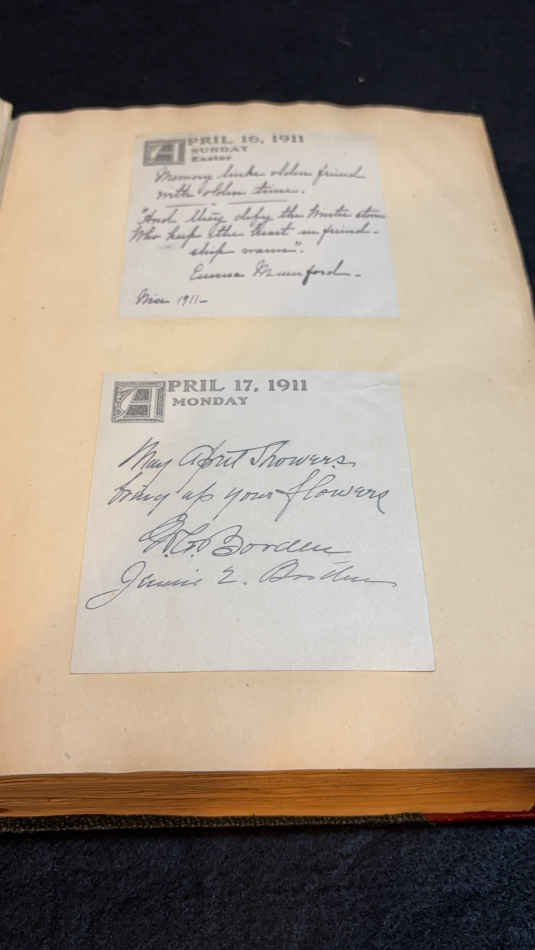 APRIL 16, 1911
SUNDAY
Easter
Memory links olden friend
with olden time.
"And they defy the Winter storm
Who keep the heart in friend-
ship warm".
Emma Mumford.
1911-
APRIL 17, 1911
MONDAY
May April Showers
bring up your flowers
Borden
Jennie E. Borden